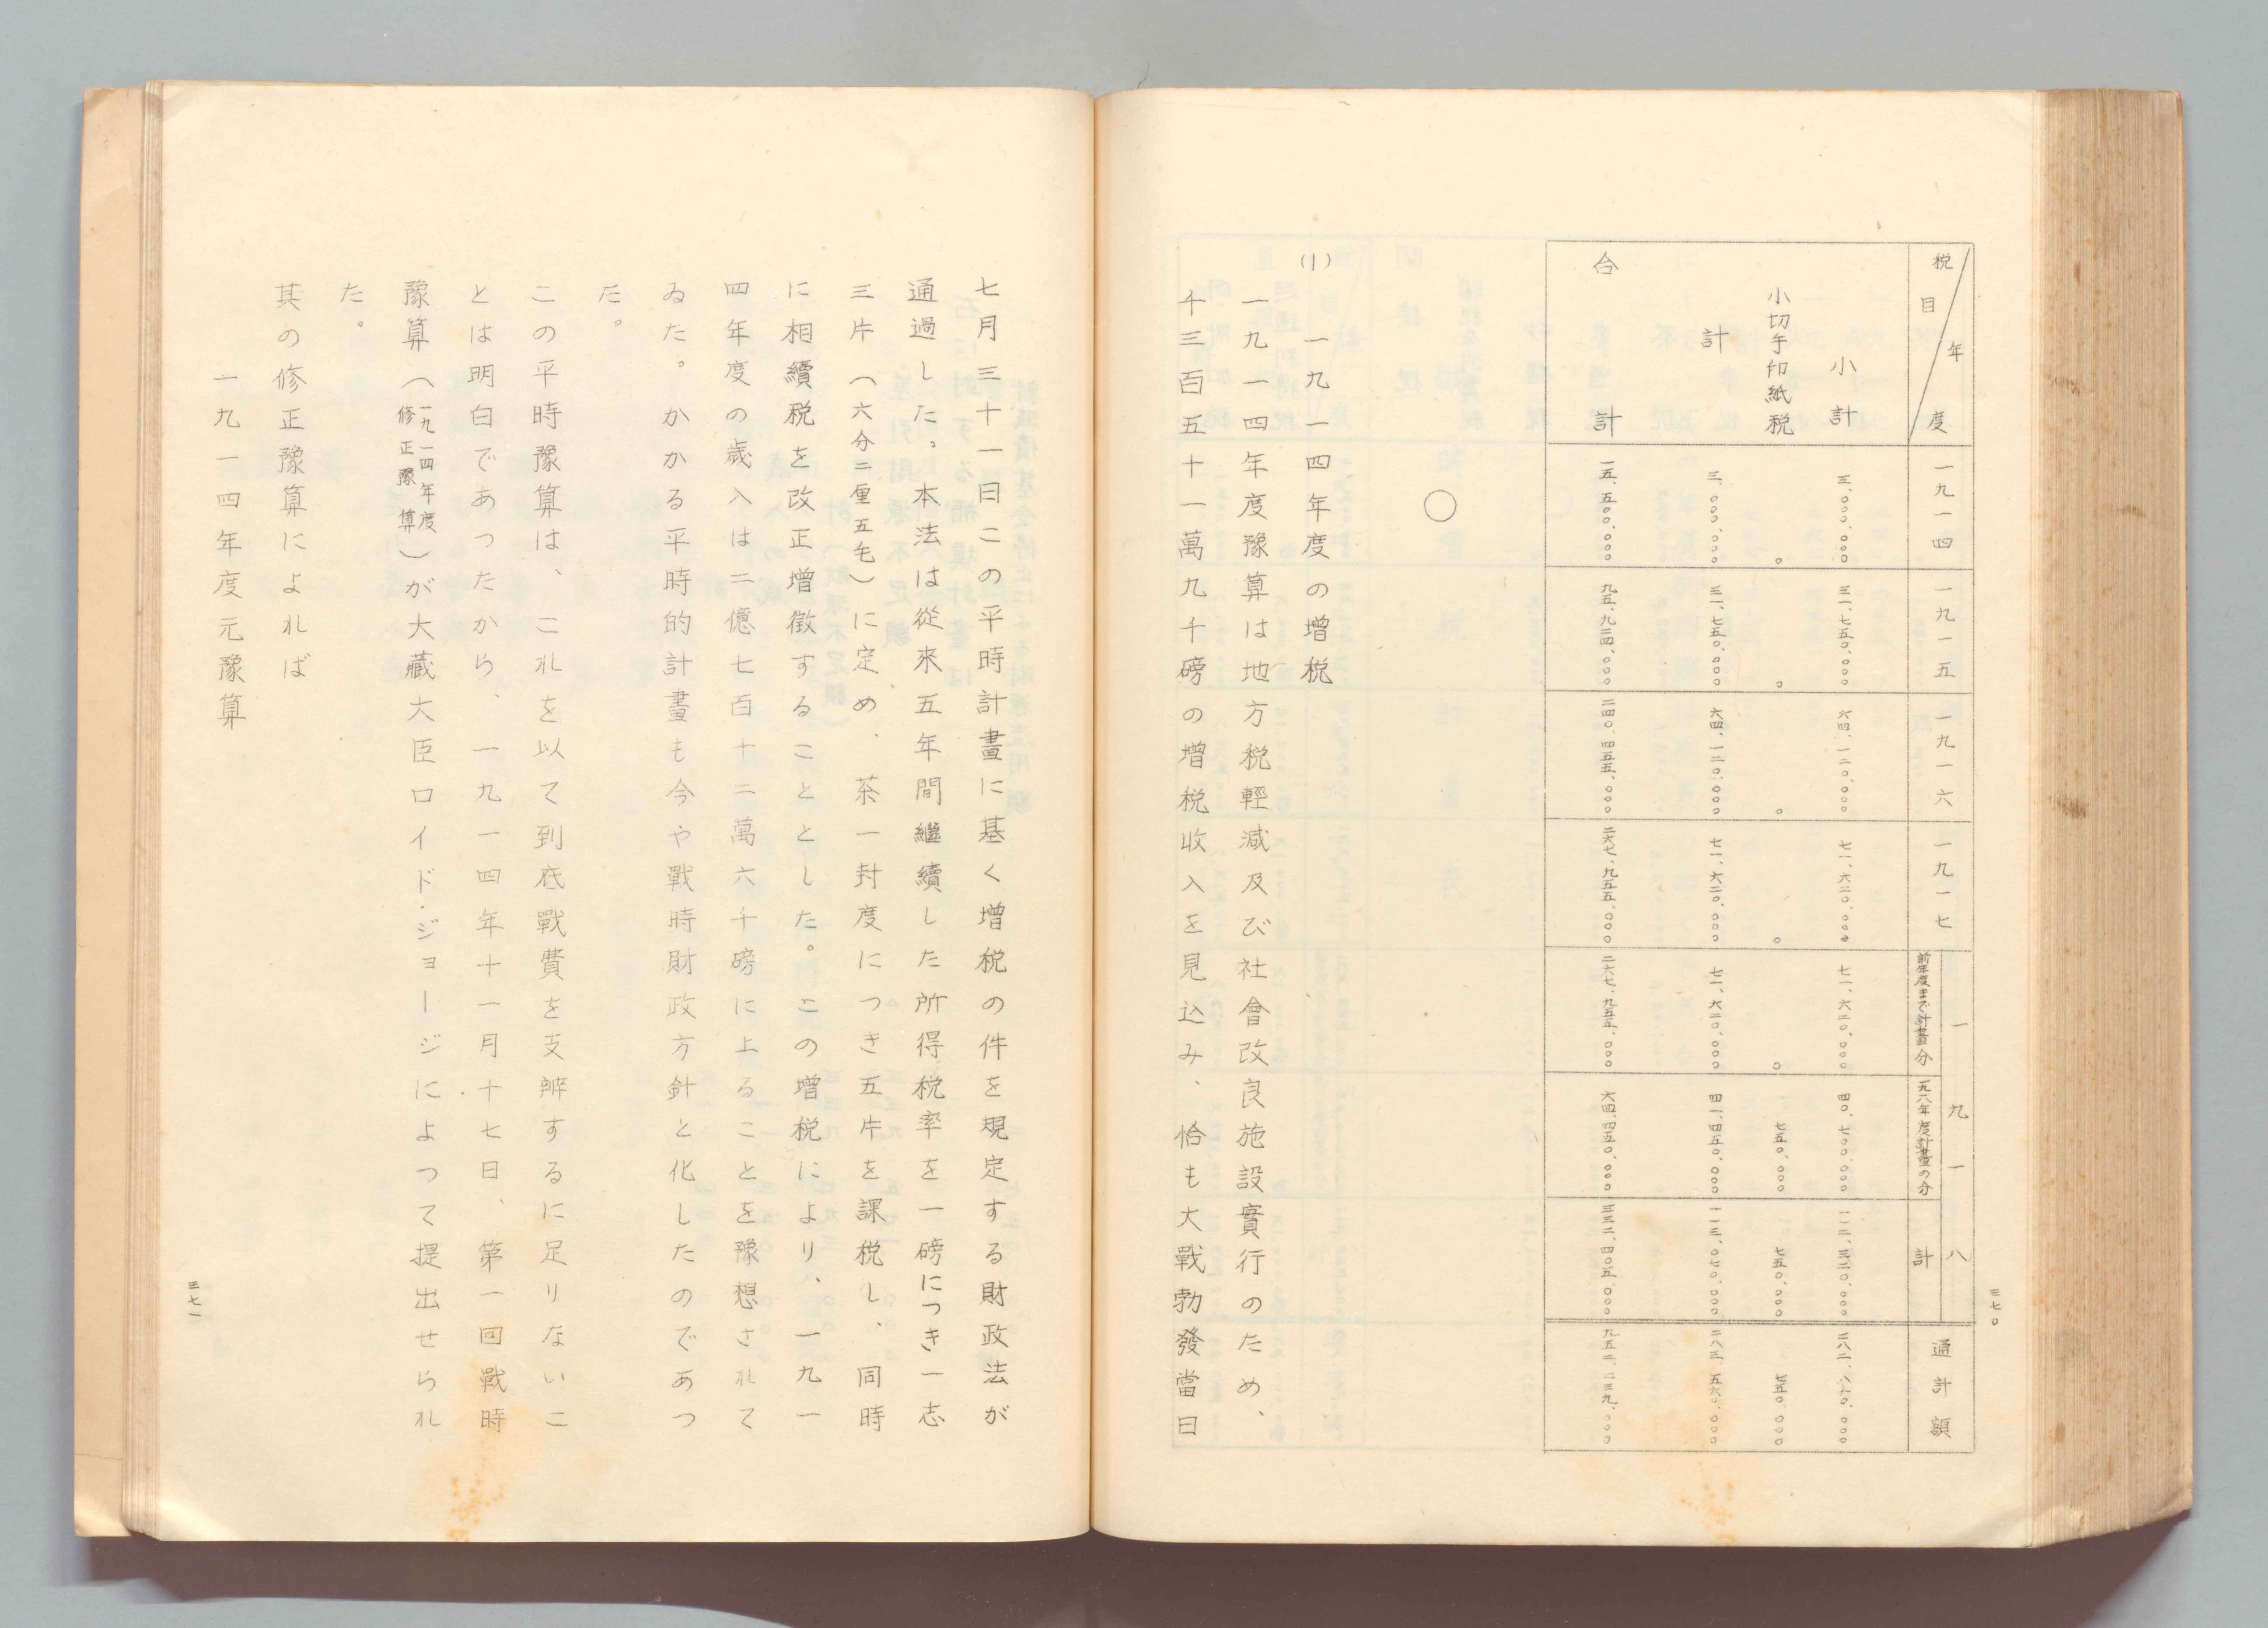 三七〇
税目 年度
一九一四
一九一五
一九一六
一九一七
一九一八
前年度まで計畫分
一九一八年度計畫の分
計
通計額
小計
三、〇〇〇、〇〇〇
三一、七五〇、〇〇〇
六四、一二〇、〇〇〇
七一、六二〇、〇〇〇
七一、六二〇、〇〇〇
四〇、七〇〇、〇〇〇
一一二、三二〇、〇〇〇
二八二、八一〇、〇〇〇
小切手印紙税
〇
〇
〇
〇
〇
七五〇、〇〇〇
七五〇、〇〇〇
七五〇、〇〇〇
計
三、〇〇〇、〇〇〇
三一、七五〇、〇〇〇
六四、一二〇、〇〇〇
七一、六二〇、〇〇〇
七一、六二〇、〇〇〇
四一、四五〇、〇〇〇
一一三、〇七〇、〇〇〇
二八三、五六〇、〇〇〇
合計
一五、五〇〇、〇〇〇
九五、九二四、〇〇〇
二四〇、四五五、〇〇〇
二六七、九五五、〇〇〇
二六七、九五五、〇〇〇
六四、四五〇、〇〇〇
三三二、四〇五、〇〇〇
九五二、二三九、〇〇〇
○
(1) 一九一四年度の増税
一九一四年度豫算は地方税輕減及び社會改良施設實行のため、
千三百五十一萬九千磅の増税收入を見込み、恰も大戰勃發當日
七月三十一日この平時計畫に基く増税の件を規定する財政法が
通過した。本法は從來五年間繼續した所得税率を一磅につき一志
三片（六分二厘五毛）に定め、茶一封度につき五片を課税し、同時
に相續税を改正増徴することとした。この増税により、一九一
四年度の歳入は二億七百十二萬六千磅に上ることを豫想されて
ゐた。かかる平時的計畫も今や戰時財政方針と化したのであつ
た。
この平時豫算は、これを以て到底戰費を支辨するに足りないこ
とは明白であつたから、一九一四年十一月十七日、第一回戰時
豫算（一九一四年度修正豫算）が大藏大臣ロイド・ジョージによつて提出せられ
た。
其の修正豫算によれば
一九一四年度元豫算
三七一